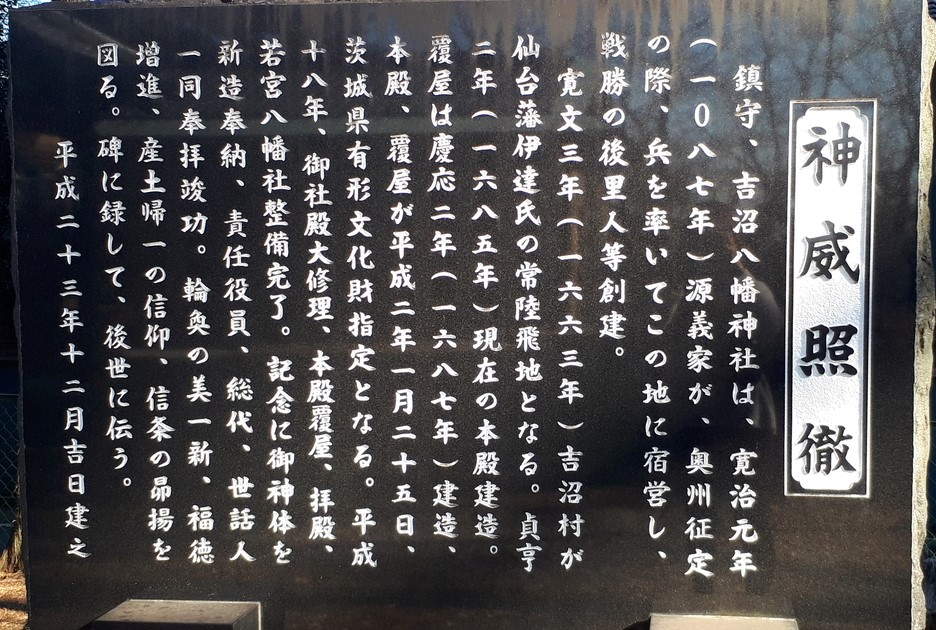 神威照徹
鎮守、吉沼八幡神社は、寛治元年
(一〇八七年)源義家が、奥州征定
の際、兵を率いてこの地に宿営し、
戦勝の後里人等創建。
寛文三年(一六六三年)吉沼村が
仙台藩伊達氏の常陸飛地となる。貞亨
二年(一六八五年)現在の本殿建造。
覆屋は慶応二年(一六八七年)建造、
本殿、覆屋が平成二年一月二十五日、
茨城県有形文化財指定となる。平成
十八年、御社殿大修理、本殿覆屋、拝殿、
若宮八幡社整備完了。記念に御神体を
新造奉納、責任役員、総代、世話人
一同奉拝竣功。輪奐の美一新、福徳
増進、産土帰一の信仰、信条の昴揚を
図る。碑に録して、後世に伝う。
平成二十三年十二月吉日建之